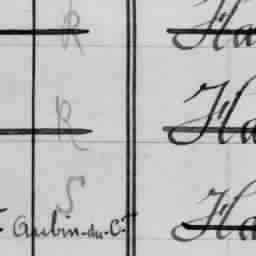 R Ha
R Ha
S
Aubin-du-C. Ha